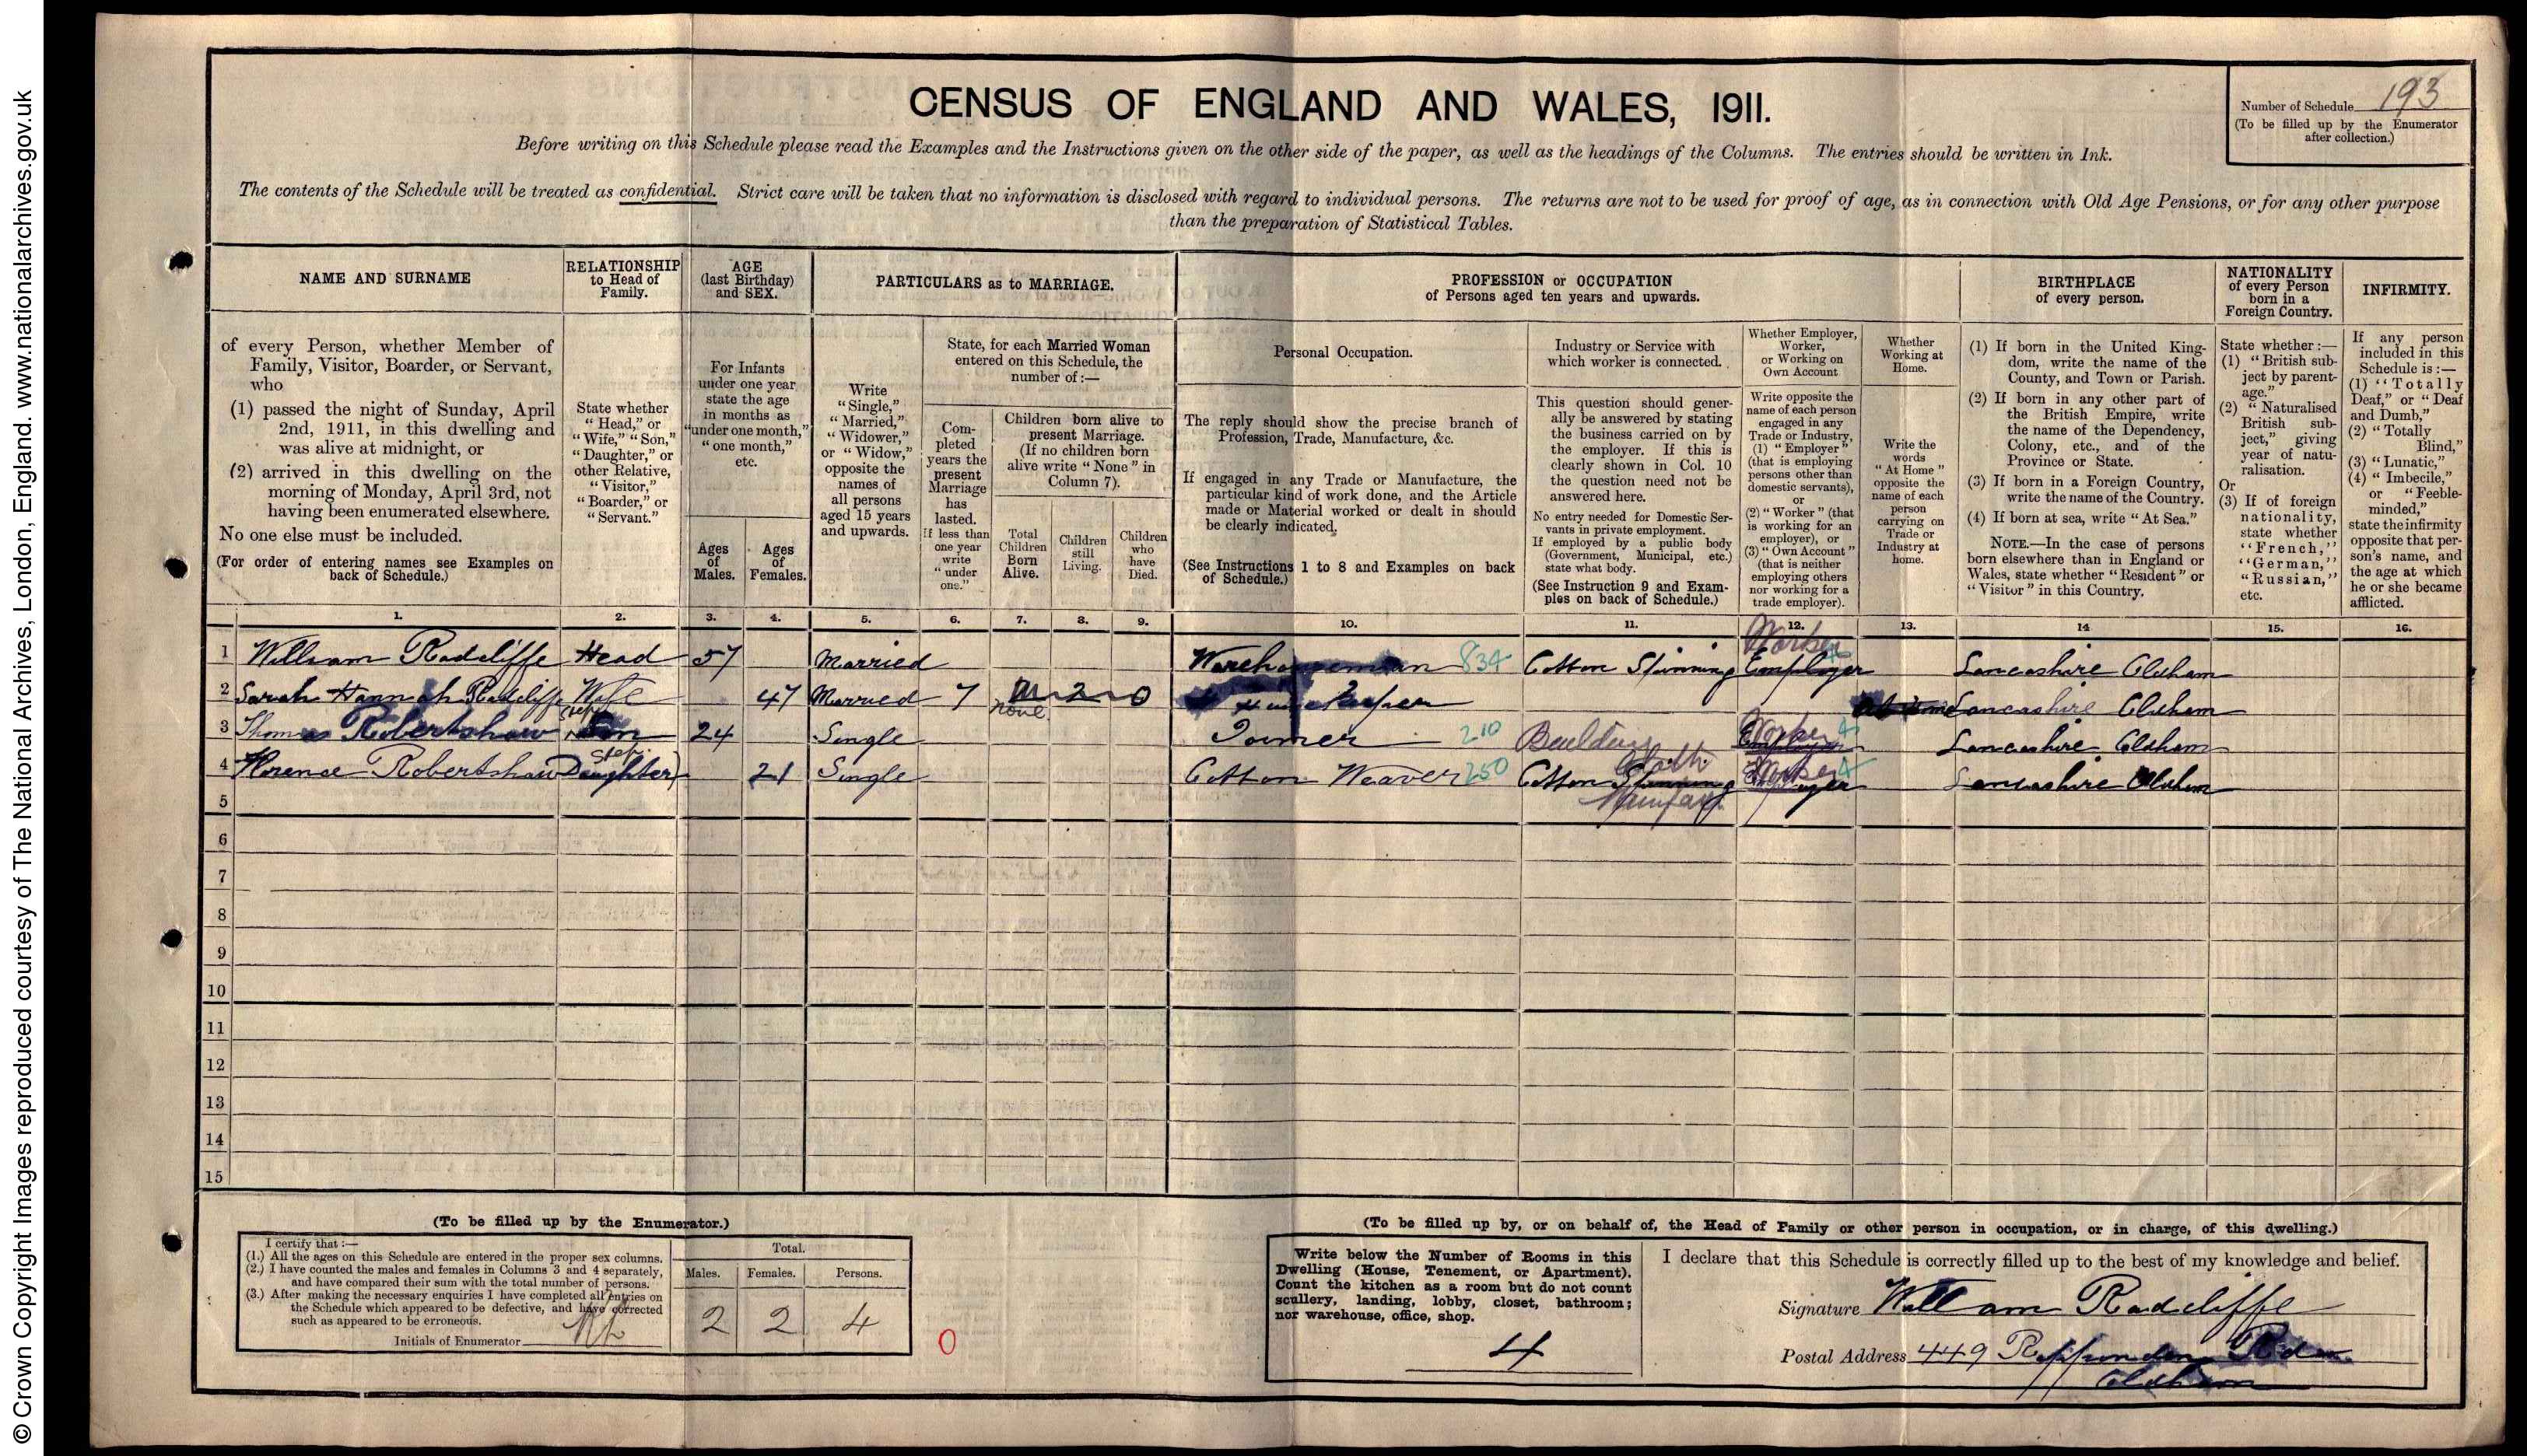 © Crown Copyright Images reproduced courtesy of The National Archives, London, England. www.nationalarchives.gov.uk
CENSUS OF ENGLAND AND WALES, 1911.
Number of Schedule 193
(To be filled up by the Enumerator
after collection.)
Before writing on this Schedule please read the Examples and the Instructions given on the other side of the paper, as well as the headings of the Columns. The entries should be written in Ink.
The contents of the Schedule will be treated as confidential. Strict care will be taken that no information is disclosed with regard to individual persons. The returns are not to be used for proof of age, as in connection with Old Age Pensions, or for any other purpose
than the preparation of Statistical Tables.
NAME AND SURNAME
of every Person, whether Member of
Family, Visitor, Boarder, or Servant,
who
(1) passed the night of Sunday, April
2nd, 1911, in this dwelling and
was alive at midnight, or
(2) arrived in this dwelling on the
morning of Monday, April 3rd, not
having been enumerated elsewhere.
No one else must be included.
(For order of entering names see Examples on
back of Schedule.)
RELATIONSHIP
to Head of
Family.
State whether
"Head," or
"Wife," "Son,"
"Daughter," or
other Relative,
"Visitor,"
"Boarder," or
"Servant."
AGE
(last Birthday)
and SEX.
For Infants
under one year
state the age
in months as
"under one month,"
"one month,"
etc.
Ages
of
Males.
Ages
of
Females.
PARTICULARS as to MARRIAGE.
Write
"Single,"
"Married,"
"Widower,"
or "Widow,"
opposite the
names of
all persons
aged 15 years
and upwards.
State, for each Married Woman
entered on this Schedule, the
number of:—
Com-
pleted
years the
present
Marriage
has
lasted.
If less than
one year
write
"under
one."
Children born alive to
present Marriage.
(If no children born
alive write "None" in
Column 7).
Total
Children
Born
Alive.
Children
still
Living.
Children
who
have
Died.
PROFESSION or OCCUPATION
of Persons aged ten years and upwards.
Personal Occupation.
The reply should show the precise branch of
Profession, Trade, Manufacture, &c.
If engaged in any Trade or Manufacture, the
particular kind of work done, and the Article
made or Material worked or dealt in should
be clearly indicated.
(See Instructions 1 to 8 and Examples on back
of Schedule.)
Industry or Service with
which worker is connected.
This question should gener-
ally be answered by stating
the business carried on by
the employer. If this is
clearly shown in Col. 10
the question need not be
answered here.
No entry needed for Domestic Ser-
vants in private employment.
If employed by a public body
(Government, Municipal, etc.)
state what body.
(See Instruction 9 and Exam-
ples on back of Schedule.)
Whether Employer,
Worker,
or Working on
Own Account
Write opposite the
name of each person
engaged in any
Trade or Industry,
(1) "Employer"
(that is employing
persons other than
domestic servants),
or
(2) "Worker" (that
is working for an
employer), or
(3) "Own Account"
(that is neither
employing others
nor working for a
trade employer).
Whether
Working at
Home.
Write the
words
"At Home"
opposite the
name of each
person
carrying on
Trade or
Industry at
home.
BIRTHPLACE
of every person.
(1) If born in the United King-
dom, write the name of the
County, and Town or Parish.
(2) If born in any other part of
the British Empire, write
the name of the Dependency,
Colony, etc., and of the
Province or State.
(3) If born in a Foreign Country,
write the name of the Country.
(4) If born at sea, write "At Sea."
NOTE.—In the case of persons
born elsewhere than in England or
Wales, state whether "Resident" or
"Visitor" in this Country.
NATIONALITY
of every Person
born in a
Foreign Country.
State whether:—
(1) "British sub-
ject by parent-
age."
(2) "Naturalised
British sub-
ject," giving
year of natu-
ralisation.
Or
(3) If of foreign
nationality,
state whether
"French,"
"German,"
"Russian,"
etc.
INFIRMITY.
If any person
included in this
Schedule is:—
(1) "Totally
Deaf," or "Deaf
and Dumb,"
(2) "Totally
Blind,"
(3) "Lunatic,"
(4) "Imbecile,"
or "Feeble-
minded,"
state the infirmity
opposite that per-
son's name, and
the age at which
he or she became
afflicted.
1. 2. 3. 4. 5. 6. 7. 8. 9. 10. 11. 12. 13. 14 15. 16.
Worker
1 William Radcliffe Head 57 Married Warehouseman 834 Cotton Spinning Employer Lancashire Oldham
2 Sarah Hannah Radcliffe Wife 47 Married 7 2 0 House Keeper At Home Lancashire Oldham
none
step
3 Thomas Robertshaw Son 24 Single Joiner 210 Building Worker Employer Lancashire Oldham
step
4 Florence Robertshaw Daughter 21 Single Cotton Weaver 250 Cotton Spinning Cloth Worker Employer Lancashire Oldham
5
6
7
8
9
10
11
12
13
14
15
(To be filled up by the Enumerator.)
I certify that:—
(1.) All the ages on this Schedule are entered in the proper sex columns.
(2.) I have counted the males and females in Columns 3 and 4 separately,
and have compared their sum with the total number of persons.
(3.) After making the necessary enquiries I have completed all entries on
the Schedule which appeared to be defective, and have corrected
such as appeared to be erroneous.
Initials of Enumerator
Total.
Males. Females. Persons.
2 2 4
0
(To be filled up by, or on behalf of, the Head of Family or other person in occupation, or in charge, of this dwelling.)
Write below the Number of Rooms in this
Dwelling (House, Tenement, or Apartment).
Count the kitchen as a room but do not count
scullery, landing, lobby, closet, bathroom;
nor warehouse, office, shop.
4
I declare that this Schedule is correctly filled up to the best of my knowledge and belief.
Signature William Radcliffe
Postal Address 449 Ripponden Rd
Oldham